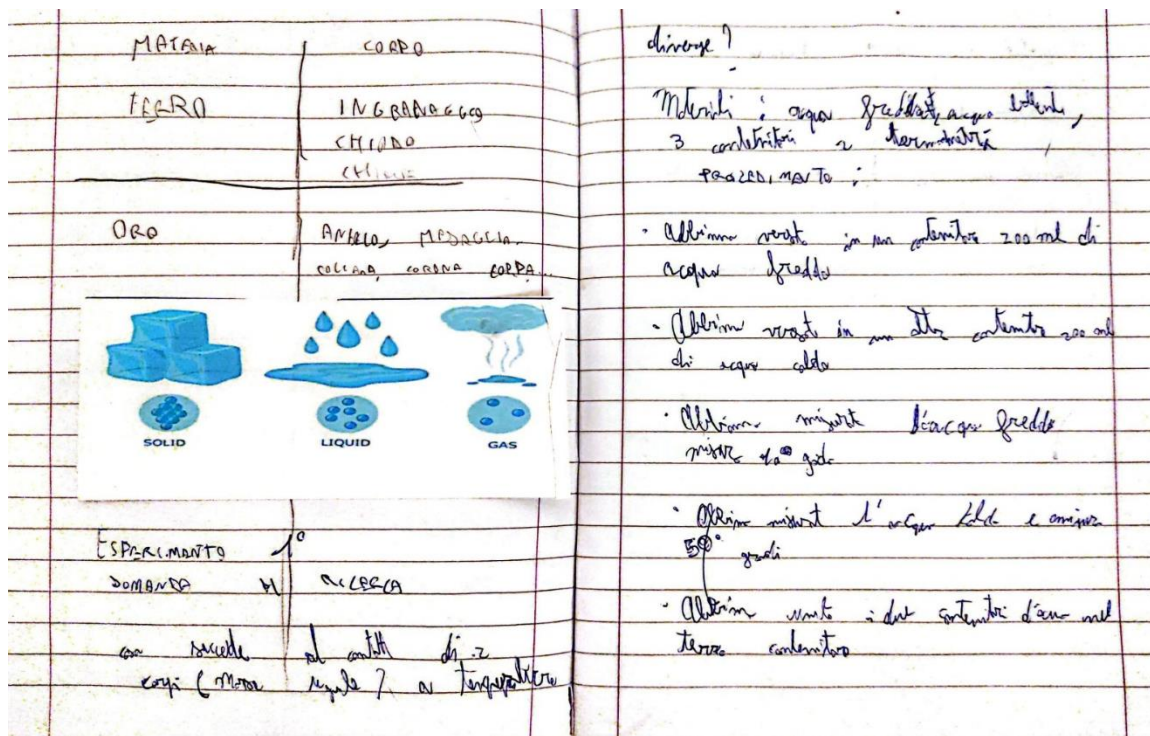 MATERIA CORPO
FERRO INGRANAGGIO
CHIODO
CHIAVE
ORO ANELLO, MEDAGLIA
COLLANA, CORONA COPPA...
SOLID LIQUID GAS
ESPERIMENTO 1°
DOMANDA DI RICERCA
cosa succede al contatto di 2
corpi (massa uguale) a temperatura
diverse?
Materiali: acqua fredda, acqua bollente,
3 contenitori 2 termometri
PROCEDIMENTO:
· Abbiamo versato in un contenitore 200 ml di
acqua fredda
· Abbiamo versato in un altro contenitore 200 ml
di acqua calda
· Abbiamo misurato l'acqua fredda
misura gradi
· Abbiamo misurato l'acqua calda e
50° gradi
· Abbiamo unito i due contenitori d'acqua nel
terzo contenitore